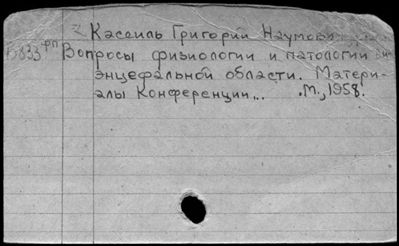 Кассиль Григорий Наумови
Вопросы физиологии и патологии
энцефальной области. Матери-
алы Конференции... М., 1958.